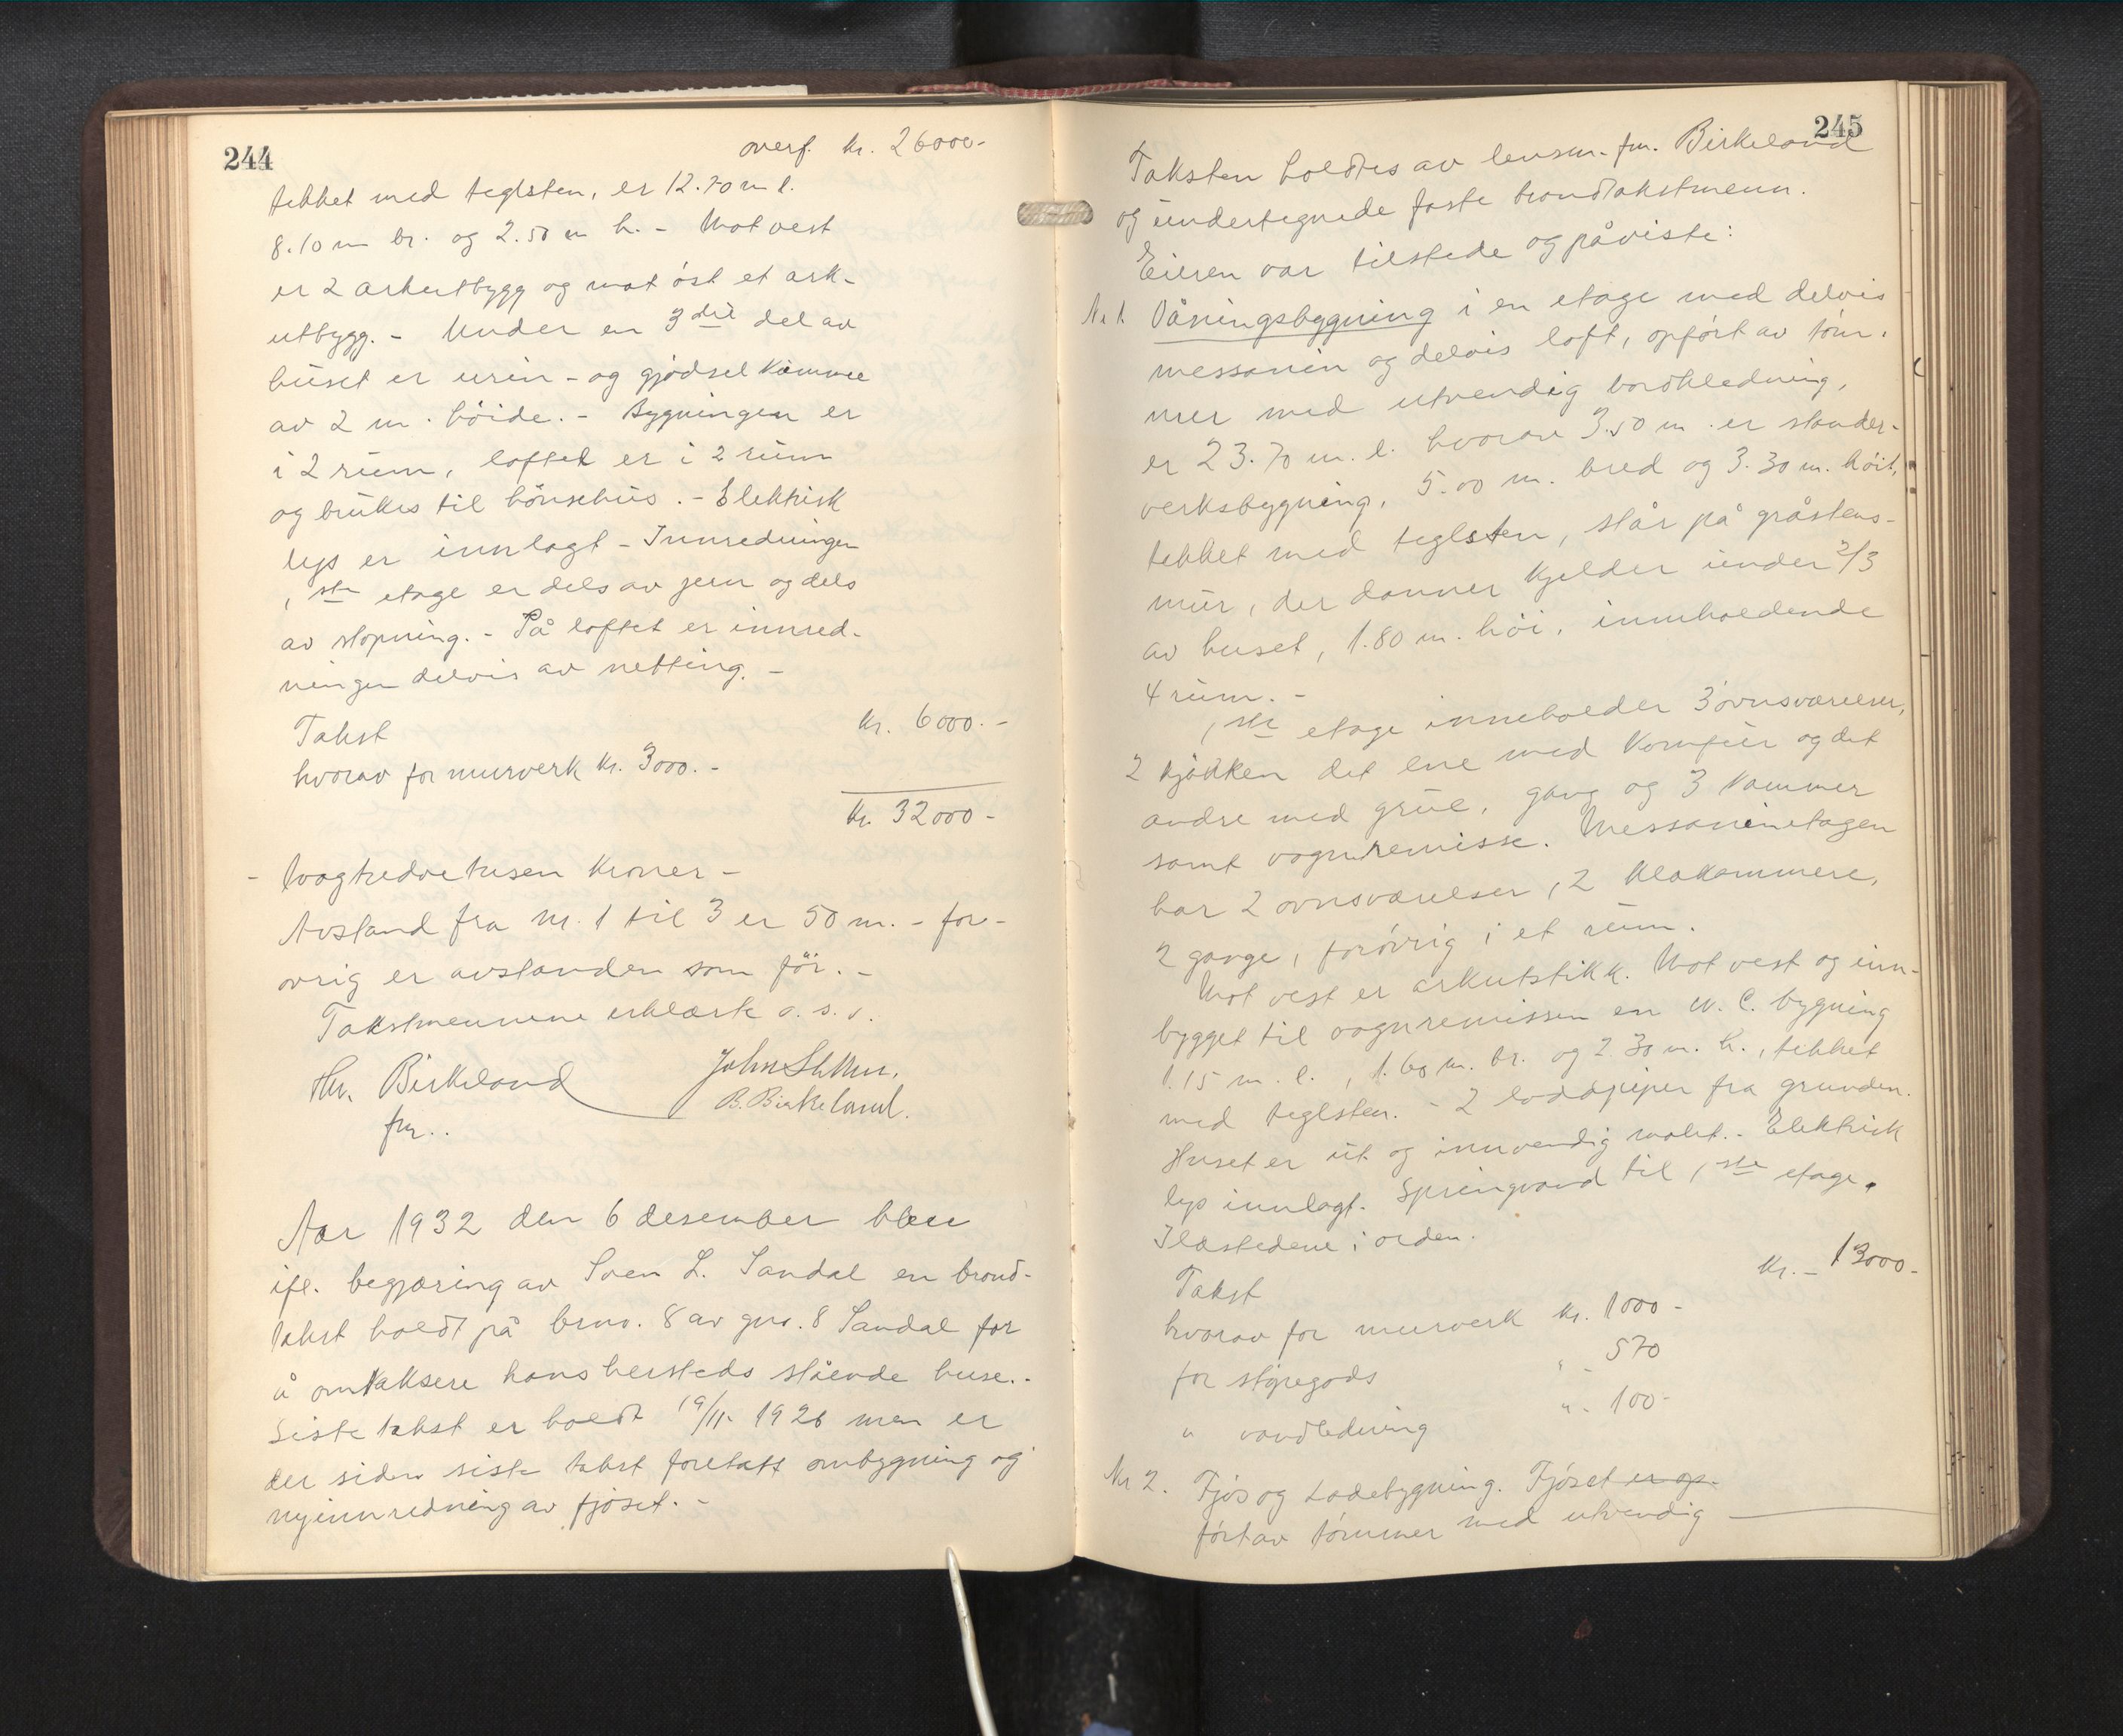 244
overf. kr. 26000-
tekket med teglsten, er 12.70 m l.
8.10 m br. og 2.50 m h. - Mot vest
er 2 arkutbygg og mot öst et ark-
utbygg. - Under en 3die del av
huset er urin- og gjödselkummer
av 2 m. höide. - Bygningen er
i 2 rum, loftet er i 2 rum
og brukes til hönsehus. - Elektrisk
lys er innlagt - Innredningen
1ste etage er dels av jern og dels
av stopning. - På loftet er innred-
ningen delvis av netting. -
Takst kr. 6000.-
hvorav for murverk kr. 3000.-
kr. 32000-
- tvogtredve tusen kroner -
Avstand fra nr. 1 til 3 er 50 m. - for-
övrig er avstanden som för. -
Takstmennene erklærte o. s. v.
Hr. Birkeland
fm..
John
B. Birkeland.
Aar 1932 den 6 desember blev
ifl. begjæring av Sven L. Sandal en brand-
takst holdt på brno. 8 av gno. 8 Sandal for
å omtaksere hans hersteds stående huse. -
Siste takst er holdt 19/11- 1926 men er
der siden siste takst foretatt ombygning og
nyinnredning av fjöset. -
245
Taksten holdtes av lensm. fm. Birkeland
og undertegnede faste brandtakstmenn.
Eieren var tilstede og påviste:
No 1. Våningsbygning i en etage med delvis
messanin og delvis loft, opfört av töm-
mer med utvendig bordkledning,
er 23.70 m. l. hvorav 3.50 m. er stender-
verksbygning, 5.00 m. bred og 3.30 m. höit,
tekket med teglsten, står på gråstens-
mur, der danner kjelder under 2/3
av huset, 1.80 m. höi, inneholdende
4 rum. -
1ste etage inneholder 3 ovnsværelser,
2 kjökken det ene med komfur og det
andre med grue, gang og 3 kammer
samt vognremisse. Messaninetagen
har 2 ovnsværelser, 2 klækammere,
2 gange, forövrig i et rum.
Mot vest er arkutstikk. Mot vest og inn-
bygget til vognremissen en W. C. bygning
1.15 m. l., 1.60 m. br. og 2.30 m. h., tekket
med teglsten. - 2 loddpiper fra grunden.
Huset er ut og innvendig malet. - Elektrisk
lys innlagt. Springvand til 1ste etage.
Ildstedene i orden.
Takst kr. - 13000-
hvorav for murverk kr. 1000-
for stöpegods " - 570
" vandledning " - 100-
Nr 2. Fjös og Ladebygning. Fjöset er op-
fört av tömmer med utvendig